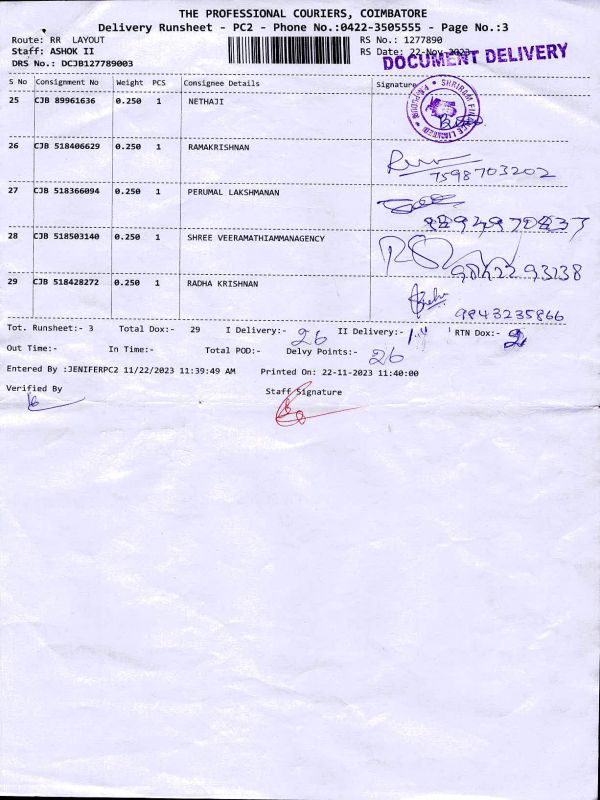 THE PROFESSIONAL COURIERS, COIMBATORE
Delivery Runsheet - PC2 - Phone No.:0422-3505555 - Page No.:3
Route: RR LAYOUT
RS No.: 1277890
Staff: ASHOK II
RS Date: 22-Nov-2023
DOCUMENT DELIVERY
DRS No.: DCJB127789003
S No Consignment No Weight PCS Consignee Details Signature
25 CJB 89961636 0.250 1 NETHAJI
SHRIRAM FINANCE LIMITED
26 CJB 518406629 0.250 1 RAMAKRISHNAN
7598703202
27 CJB 518366094 0.250 1 PERUMAL LAKSHMANAN
28 CJB 518503140 0.250 1 SHREE VEERAMATHIAMMANAGENCY
29 CJB 518428272 0.250 1 RADHA KRISHNAN
9843235866
Tot. Runsheet:- 3 Total Dox:- 29 I Delivery:- 26 II Delivery:- RTN Dox:- 2
Out Time:- In Time:- Total POD:- Delvy Points:- 26
Entered By :JENIFERPC2 11/22/2023 11:39:49 AM Printed On: 22-11-2023 11:40:00
Verified By Staff Signature